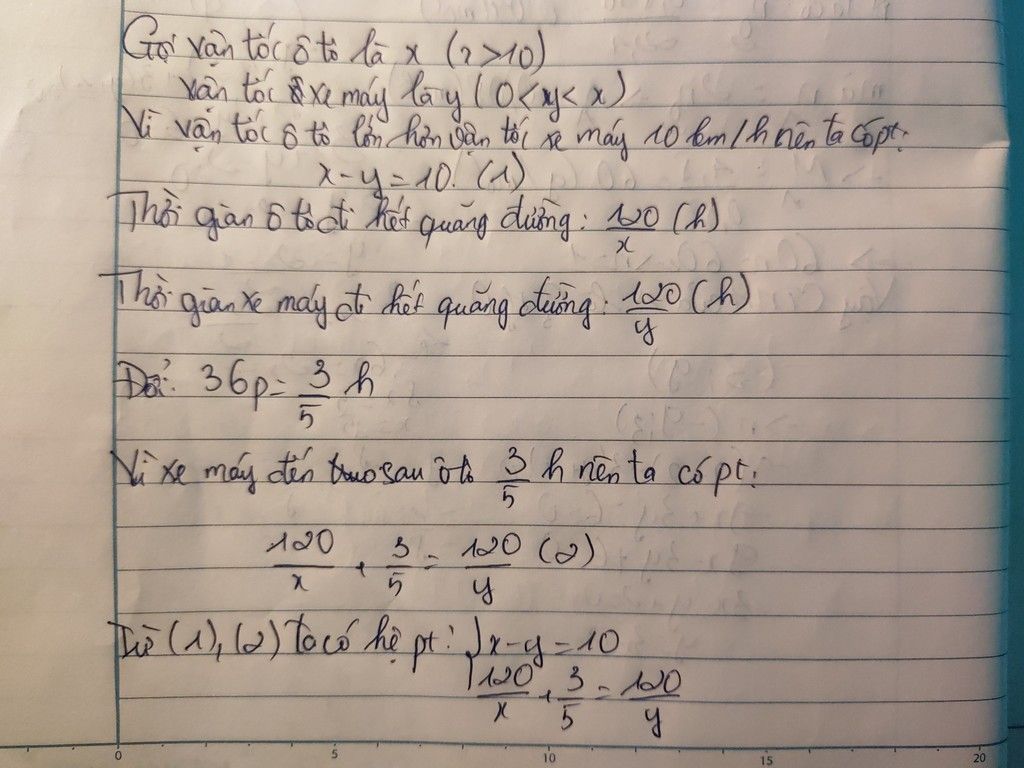 Gọi vận tốc ô tô là x (x>10)
vận tốc xe máy là y (0<y<x)
Vì vận tốc ô tô lớn hơn vận tốc xe máy 10 km/h nên ta có pt:
x-y=10. (1)
Thời gian ô tô đi hết quãng đường: 120/x (h)
Thời gian xe máy đi hết quãng đường: 120/y (h)
Đổi: 36p = 3/5 h
Vì xe máy đến sau ô tô 3/5 h nên ta có pt:
120/x + 3/5 = 120/y (2)
Từ (1), (2) ta có hệ pt: { x-y=10
120/x + 3/5 = 120/y
0 5 10 15 20